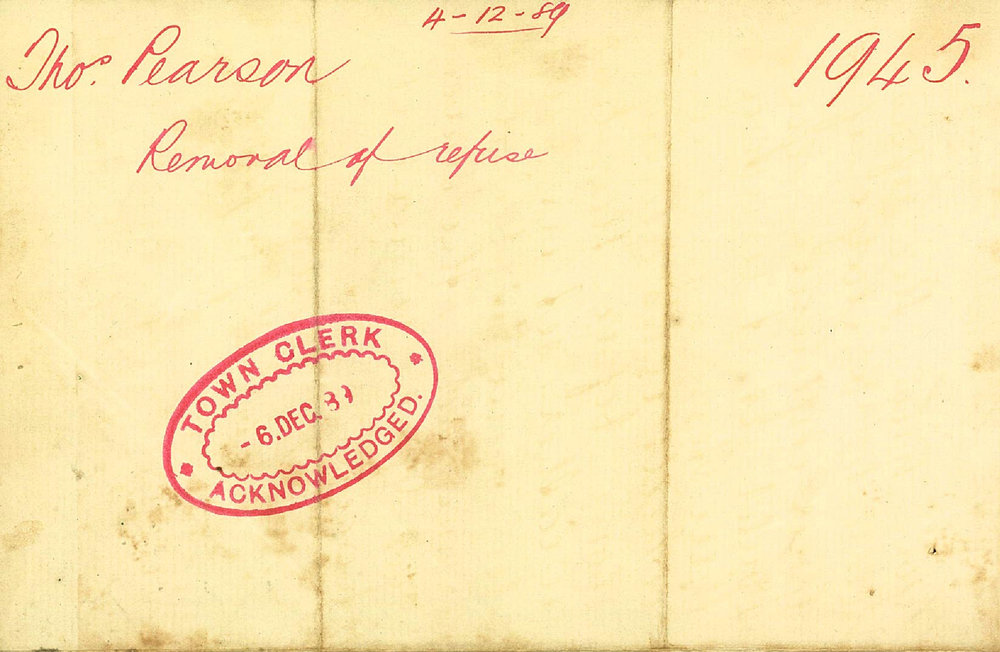 4-12-89
Thos. Pearson
1945.
Removal of refuse
TOWN CLERK
- 6. DEC. 89
ACKNOWLEDGED.